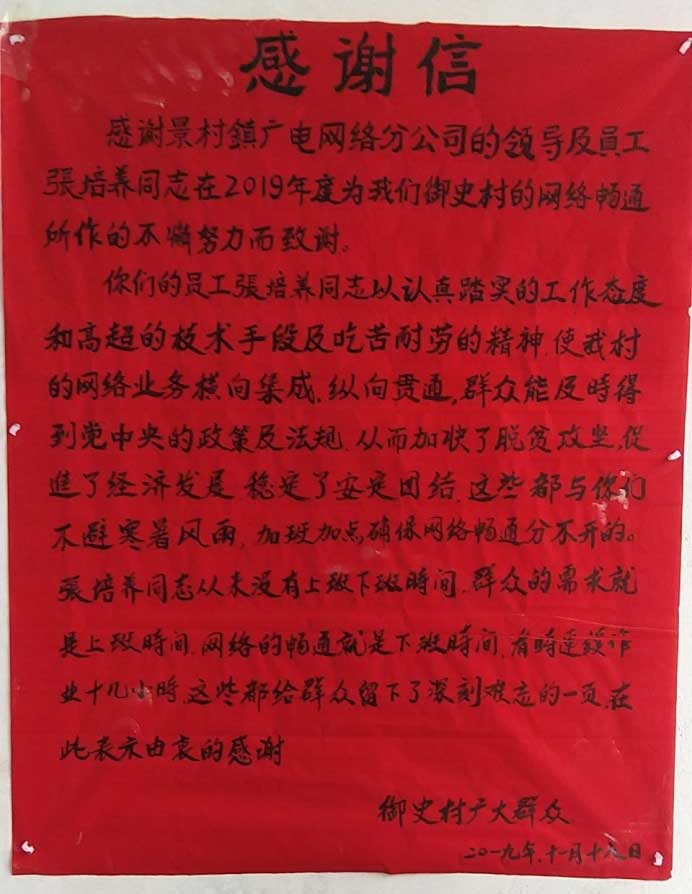 感谢信
感谢景村鎮广电网络分公司的领导及員工
張培养同志在2019年度为我们御史村的网络畅通
所作的不懈努力而致谢。
你们的员工張培养同志以认真踏实的工作态度
和高超的技术手段及吃苦耐劳的精神.使我村
的网络业务横向集成.纵向贯通,群众能及時得
到党中央的政策及法规.从而加快了脱贫攻坚.促
進了经济发展.稳定了安定团结.这些都与你们
不避寒暑风雨,加班加点确保网络畅通分不开的。
張培养同志从来没有上班下班時间.群众的需求就
是上班時间.网络的畅通就是下班時间.有時连续作
业十几小時.这些都给群众留下了深刻难忘的一页.在
此表示由衷的感谢
御史村广大群众
二〇一九年.十一月十九日